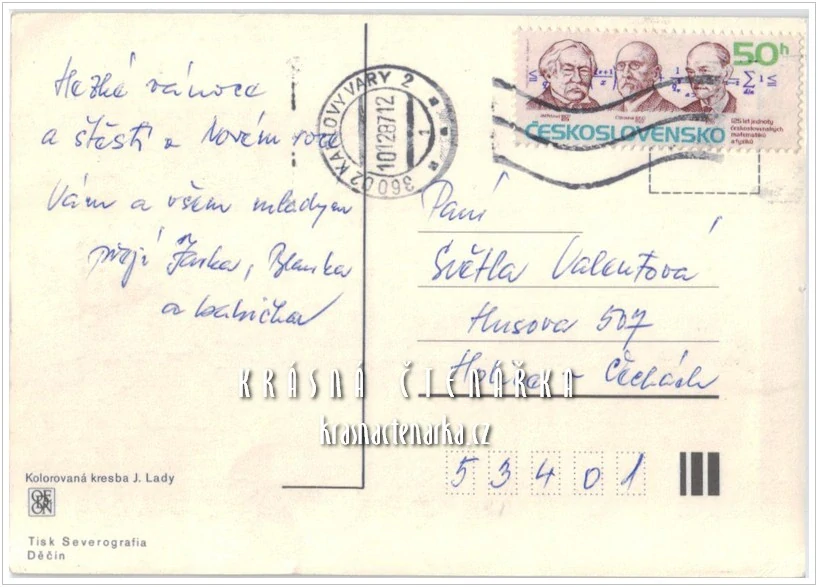 Hezké vánoce
a štěstí v Novém roce
Vám a všem mladým
přejí Jarka, Blanka
a babička
Kolorovaná kresba J. Lady
Tisk Severografia
Děčín
36002 KARLOVY VARY 2
10.12.87.12
1
50h
ČESKOSLOVENSKO
125 let jednoty
československých
matematiků
a fyziků
Paní
Světla Valentová
Husova 507
Holice v Čechách
53401
KRÁSNÁ ČTENÁŘKA
krasnactenarka.cz